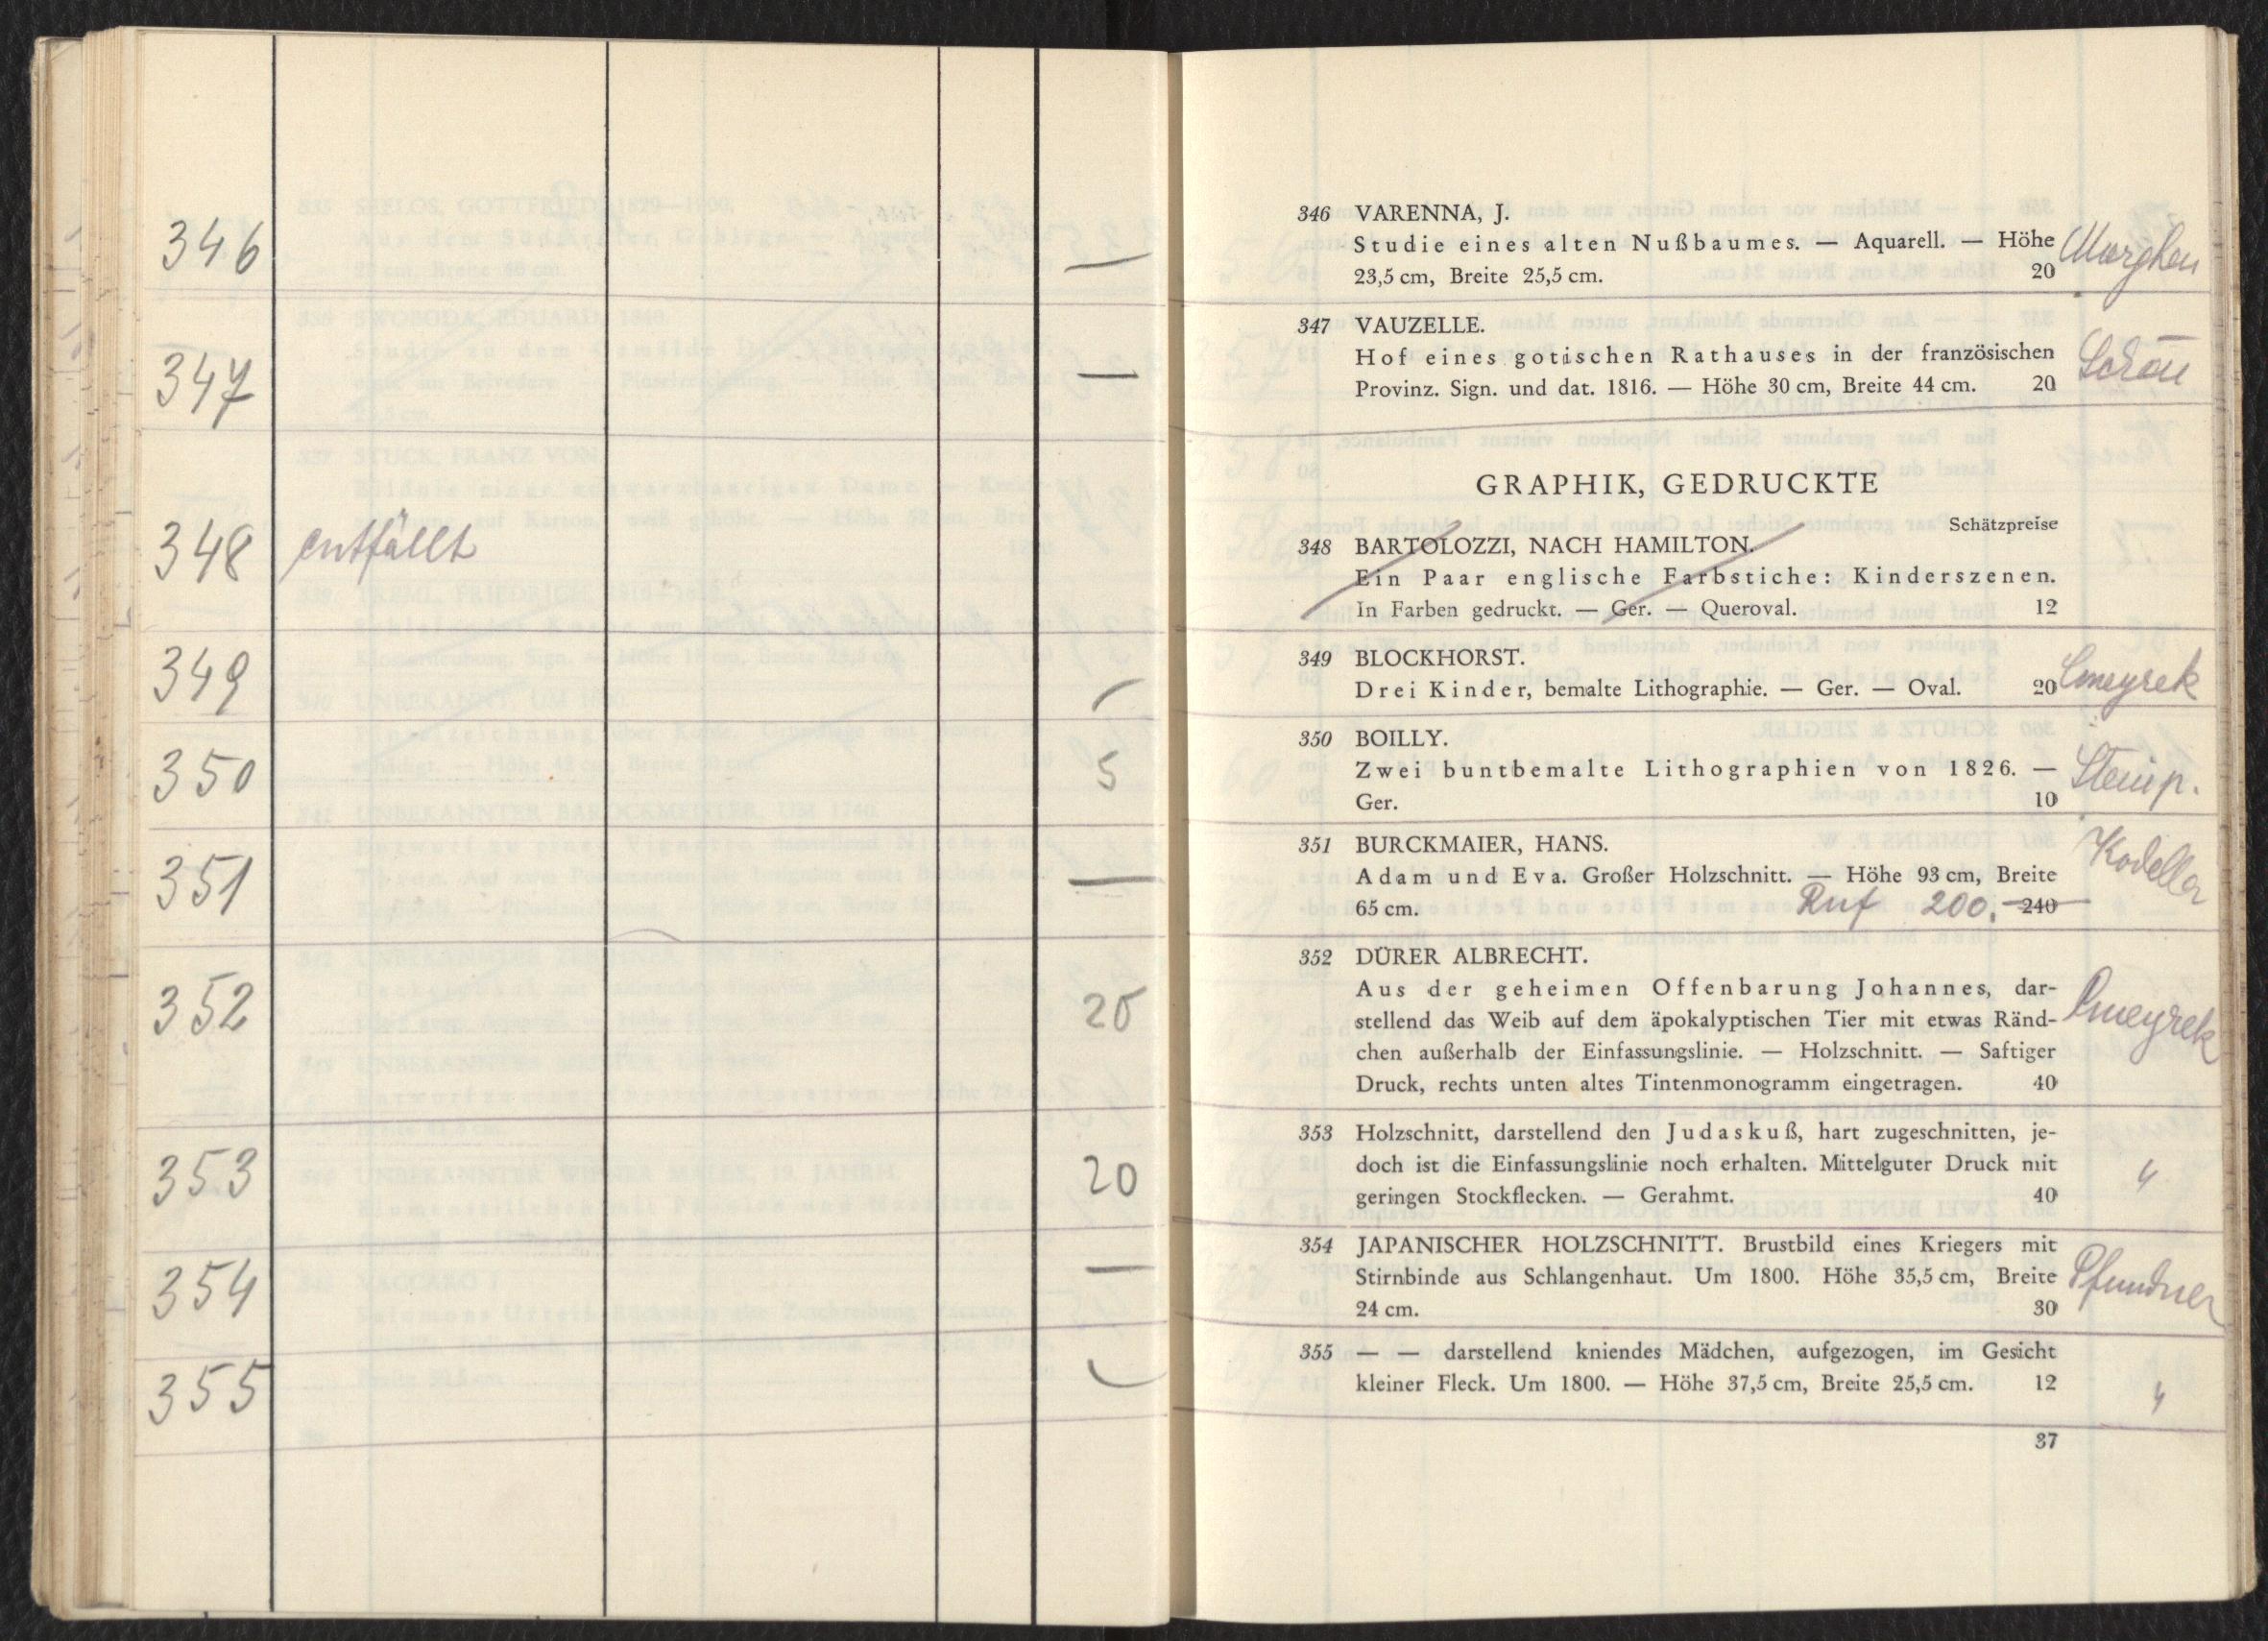 346
—
347
—
348 entfällt
349
350 5
351 —
352 25
353 20
354 —
355
346 VARENNA, J.
Studie eines alten Nußbaumes. — Aquarell. — Höhe
23,5 cm, Breite 25,5 cm. 20
347 VAUZELLE.
Hof eines gotischen Rathauses in der französischen
Provinz. Sign. und dat. 1816. — Höhe 30 cm, Breite 44 cm. 20
Schön
GRAPHIK, GEDRUCKTE
Schätzpreise
348 BARTOLOZZI, NACH HAMILTON.
Ein Paar englische Farbstiche: Kinderszenen.
In Farben gedruckt. — Ger. — Queroval. 12
349 BLOCKHORST.
Drei Kinder, bemalte Lithographie. — Ger. — Oval. 20
350 BOILLY.
Zwei buntbemalte Lithographien von 1826. —
Ger. 10
351 BURCKMAIER, HANS.
Adam und Eva. Großer Holzschnitt. — Höhe 93 cm, Breite
65 cm. Ruf 200. 240
352 DÜRER ALBRECHT.
Aus der geheimen Offenbarung Johannes, dar-
stellend das Weib auf dem äpokalyptischen Tier mit etwas Ränd-
chen außerhalb der Einfassungslinie. — Holzschnitt. — Saftiger
Druck, rechts unten altes Tintenmonogramm eingetragen. 40
353 Holzschnitt, darstellend den Judaskuß, hart zugeschnitten, je-
doch ist die Einfassungslinie noch erhalten. Mittelguter Druck mit
geringen Stockflecken. — Gerahmt. 40
354 JAPANISCHER HOLZSCHNITT. Brustbild eines Kriegers mit
Stirnbinde aus Schlangenhaut. Um 1800. Höhe 35,5 cm, Breite
24 cm. 30
Pfundner
355 — — darstellend kniendes Mädchen, aufgezogen, im Gesicht
kleiner Fleck. Um 1800. — Höhe 37,5 cm, Breite 25,5 cm. 12
37